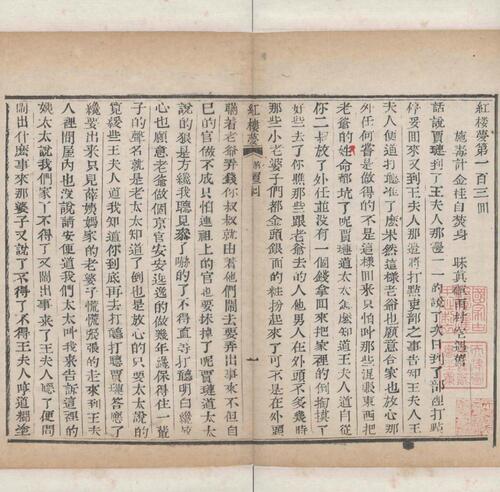 紅樓夢第一百三回
施毒計金桂自焚身 昧真禪雨村空遇舊
話說賈璉到了王夫人那邊一一的說了次日到了部裡打點
停妥回來又到王夫人那邊將打點吏部之事告知王夫人王
夫人便道打聽准了麽果然這樣老爺也願意合家也放心那
外任何嘗是做得的不是這樣回來只怕叫那些混賬東西把
老爺的性命都坑了呢賈璉道太太怎麽知道王夫人道自從
你二叔放了外任並沒有一個錢拿回來把家裡的倒掏摸了
好些去了你瞧那些跟老爺去的人他男人在外頭不多幾時
那些小老婆子們都金頭銀面的粧扮起來了可不是在外頭
紅樓夢 回 一
瞞着老爺弄錢你叔叔就由着他們鬧去要弄出事來不但自
己的官做不成只怕連祖上的官也要抹掉了呢賈璉道太太
說的狠是方纔我聽見參了嚇的了不得直等打聽明白纔放
心也願意老爺做個京官安安逸逸的做幾年纔保得住一輩
子的聲名就是老太太知道了倒也是放心的只要太太說的
寬緩些王夫人道我知道你到底再去打聽打聽賈璉答應了
纔要出來只見薛姨媽家的老婆子慌慌張張的走來到王夫
人裡間屋內也沒說請安便道我們太太叫我來告訴這裡的
姨太太說我們家了不得了又鬧出事來了王夫人聽了便問
鬧出什麽事來那婆子又說了不得了不得王夫人哼道糊塗